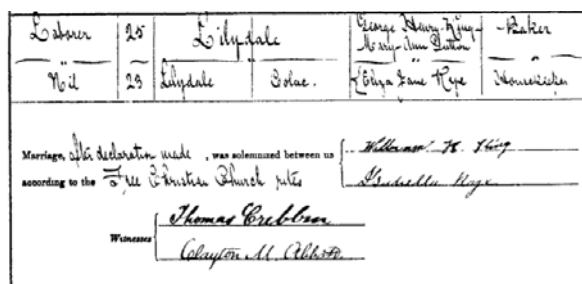 Laborer 25 Lilydale George Henry King Baker
" " Mary Ann Sutton "
Nil 23 Lilydale Colac. Eliza Jane Housekeeper
Marriage, after declaration made, was solemnized between us
according to the Free Christian Church rites
King
Isabella
Witnesses
Thomas Crebbin
Clayton M. Abbott.